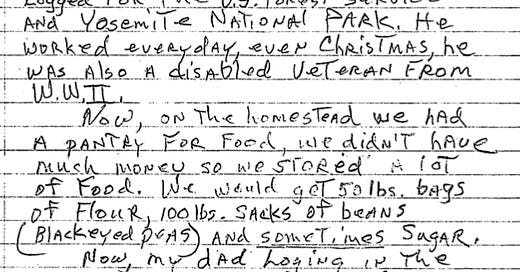 Logged FOR THE U.S. FOREST SERVICE
AND YOSEMITE NATIONAL PARK. He
worked everyday, even CHRISTMAS, he
was Also A disabled VETERAN FROM
W.W.II.
Now, on THE homestead we had
A PANTRY FOR FOOD, we didN'T have
much money so we STORED A loT
of Food. We would geT 50 lbs. bags
of FLOUR, 100 lbs. SACKS of beANS
(BLACKeyed peAS) AND someTimes SugAR.
Now, my dAd Loging IN THe